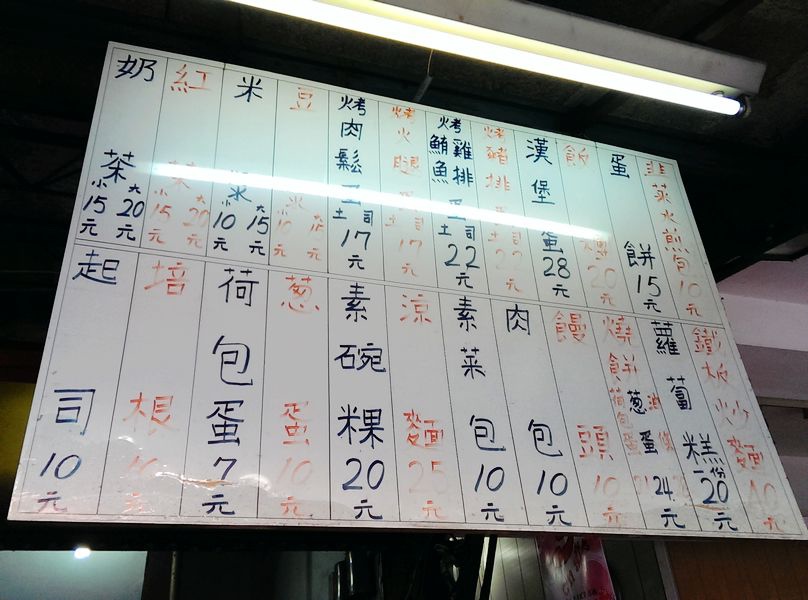 韭菜水煎包10元
蛋餅15元
飯糰20元
漢堡蛋28元
烤豬排蛋土司22元
烤雞排鮪魚蛋土司22元
烤火腿蛋土司17元
烤肉鬆蛋土司17元
豆漿小10元大15元
米漿小10元大15元
紅茶小15元大20元
奶茶小15元大20元
鐵板炒麵40元
蘿蔔糕一份20元
燒餅 油條 荷包蛋 葱蛋 24元
饅頭10元
肉包10元
素菜包10元
涼麵25元
素碗粿20元
葱蛋10元
荷包蛋7元
培根10元
起司10元